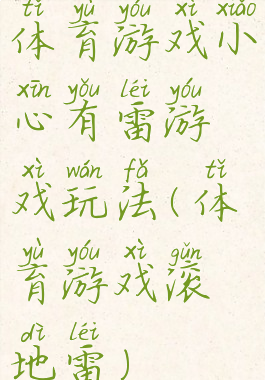 tǐ yù yóu xì xiǎo
体育游戏小
xīn yǒu léi yóu
心有雷游
xì wán fǎ tǐ
戏玩法(体
yù yóu xì gǔn
育游戏滚
dì léi
地雷)